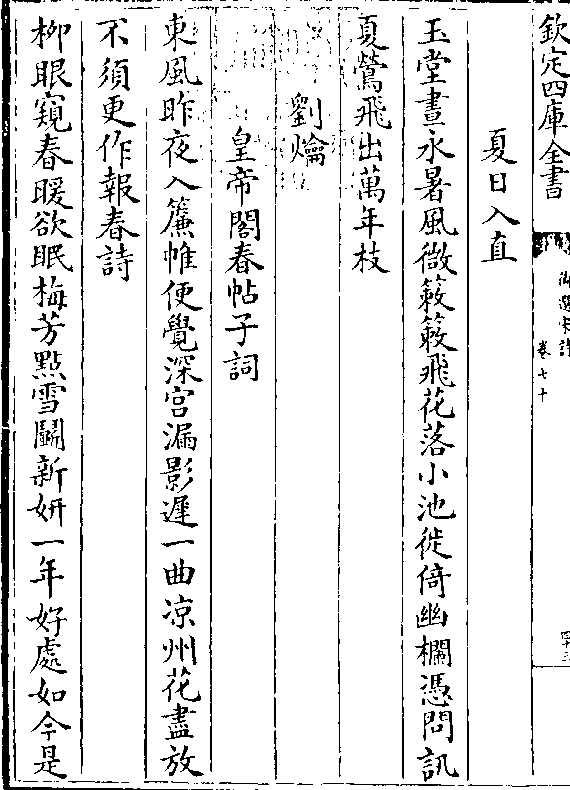 欽定四庫全書
御選宋詩
卷七十
四十三
夏日入直
玉堂晝永暑風微簌簌飛花落小池徙倚幽欄憑問訊
夏鶯飛出萬年枝
劉爚
皇帝閣春帖子詞
東風昨夜入簾帷便覺深宫漏影遲一曲凉州花盡放
不須更作報春詩
柳眼窺春暖欲眠梅芳點雪鬭新妍一年好處如今是